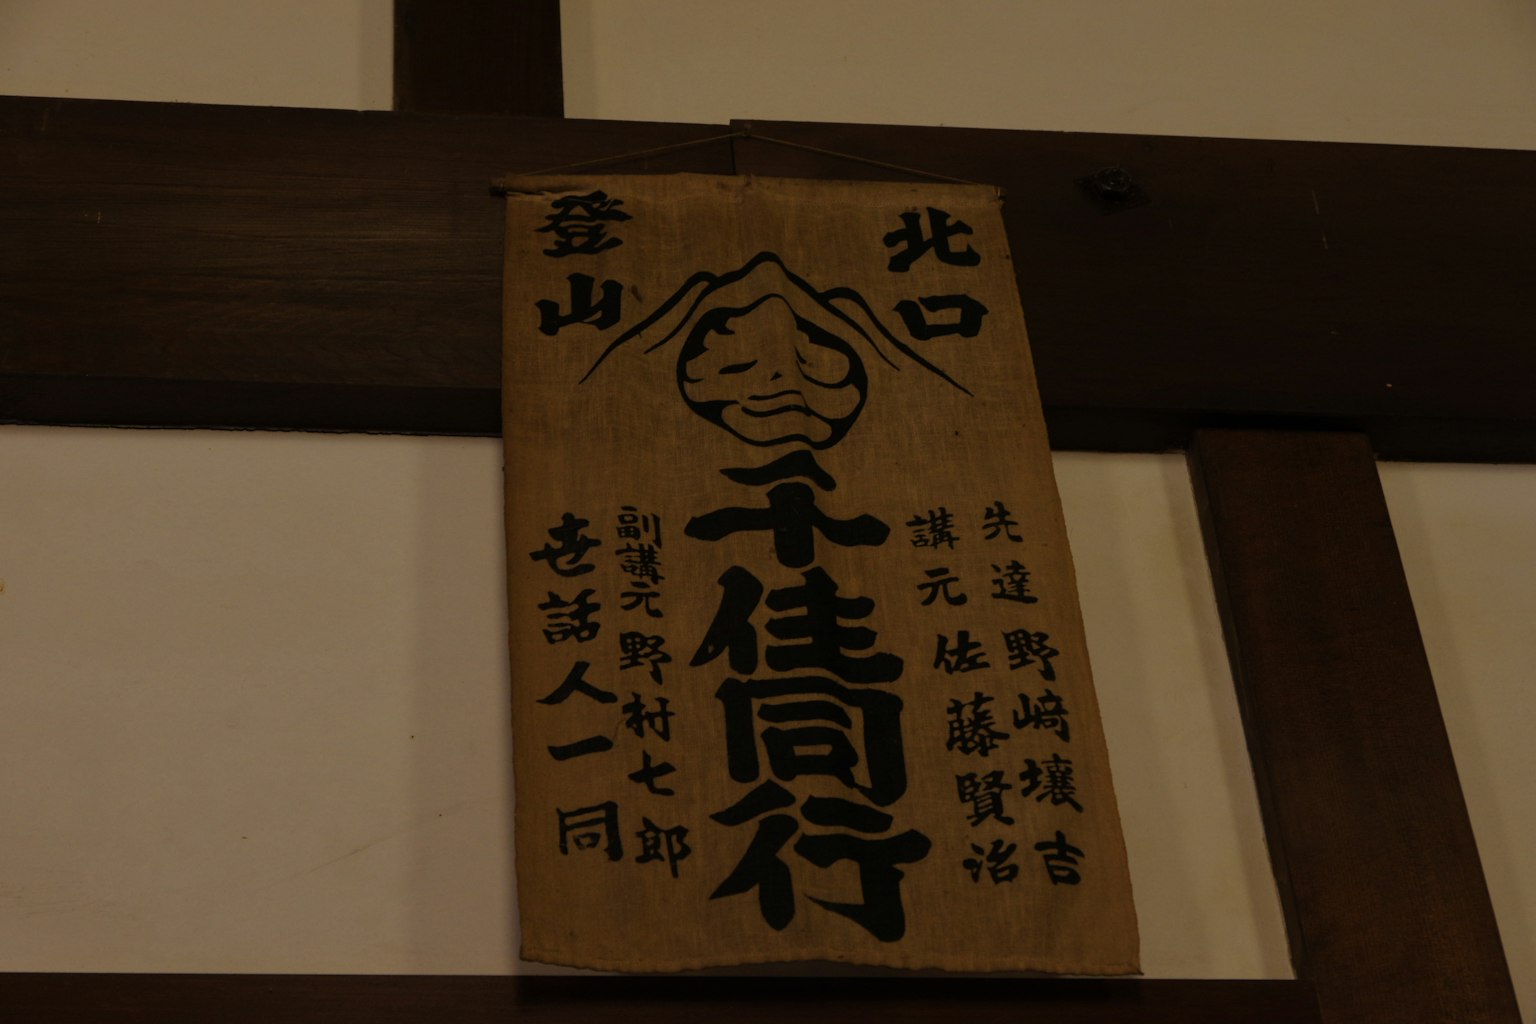 北口
登山
千住同行
先達 野﨑壤吉
講元 佐藤賢治
副講元 野村七郎
世話人一同